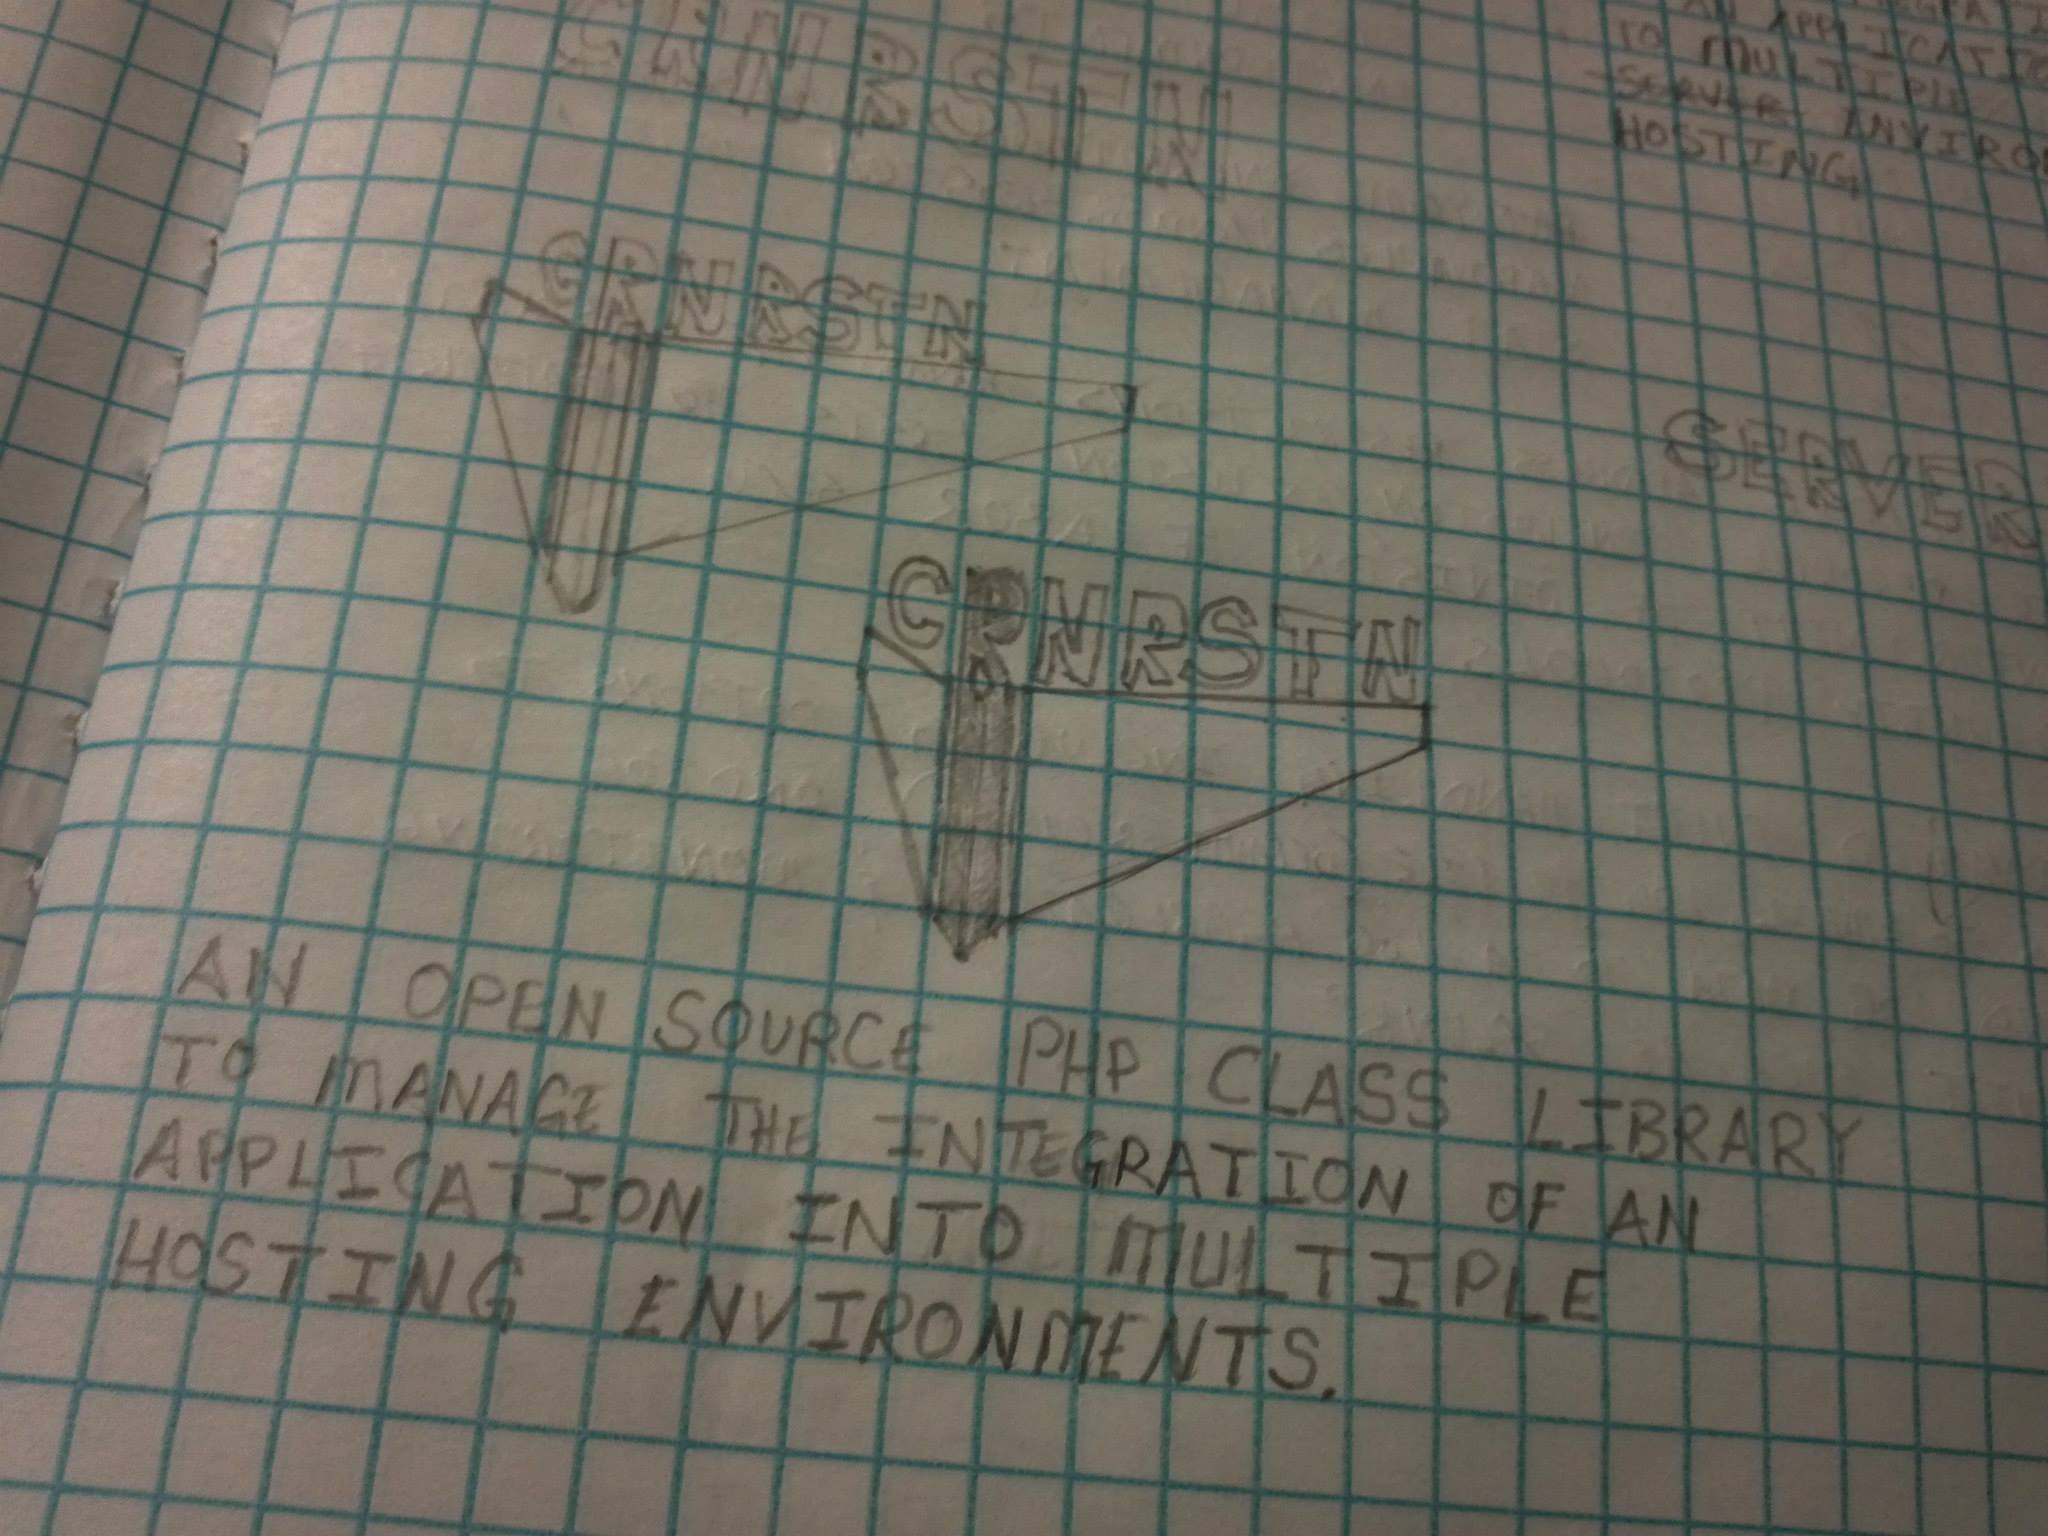 CRNRSTN
AN APPLICATIO
TO MULTIPLE
SERVER ENVIRO
HOSTING
CRNRSTN
SERVER
CRNRSTN
AN OPEN SOURCE PHP CLASS LIBRARY
TO MANAGE THE INTEGRATION OF AN
APPLICATION INTO MULTIPLE
HOSTING ENVIRONMENTS.